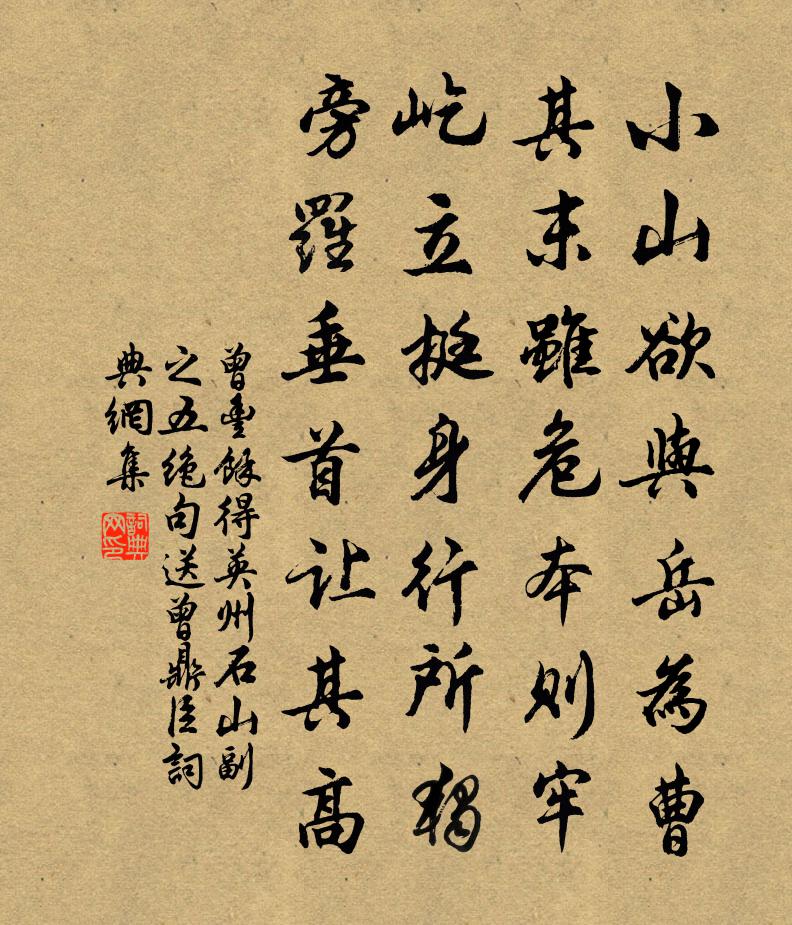 小山欲與岳為曹
其末雖危本則牢
屹立挺身行所獨
旁羅垂首让其高
曾豐餘得英州石山副
之五絕句送曾鼎臣詞
典網集
詞典網印